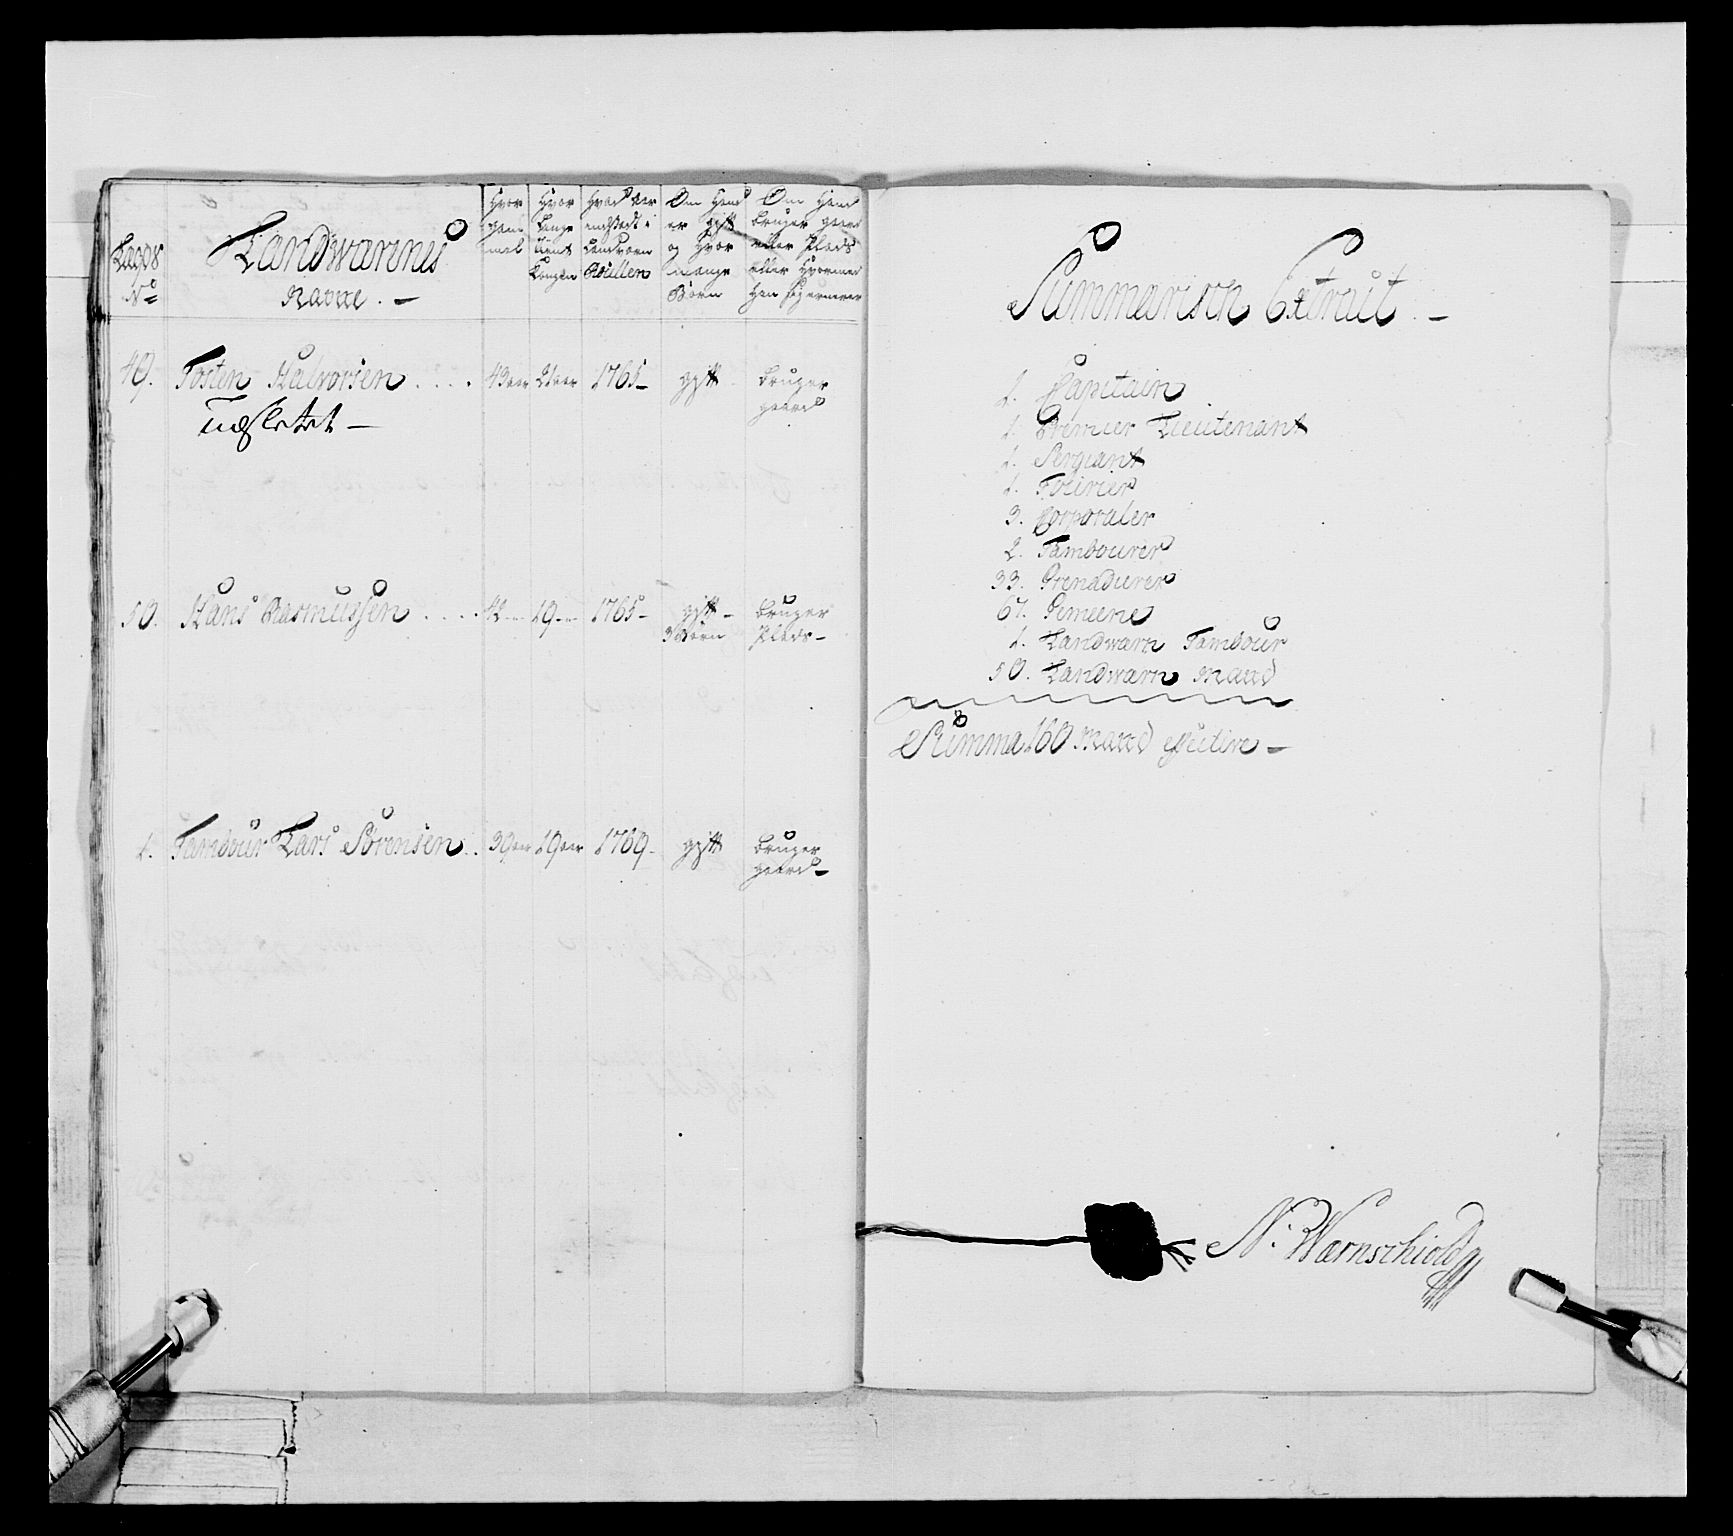 Lægds
No
Landwærnes
Navne. —
Hvor
gam-
mel
Hvor
Lenge
tient
Kongen
Hvad aar
indsadt i
Landværn
Roullen
Om Hand
er gift
og Hvor
mange
Børn
Om Hand
bruger gaard
eller Plads
eller Hvormed
Han sig ernerer
49. Tosten Halvorsen . . . . 43 aar 21 aar 1765 — gift bruger
gaard
udslettet —
50. Hans Rasmussen . . . . 42 — 19 — 1765 — gift — bruger
3 Børn Plads —
1. Tambour Lars Sørensen . . 39 aar 19 aar 1769 — gift bruger
gaard —
Summarisch Extrait. —
1. Capitain
1. Premier Lieutenant
1. Sergiant
1. Fourier
3. Corporaler
2. Tambourer
33. Grenadierer
67. Gemeene
1. Landwærn Tambour
50. Landwærn Mand
Summa 160 Mand effective —
N: Wærnschiold